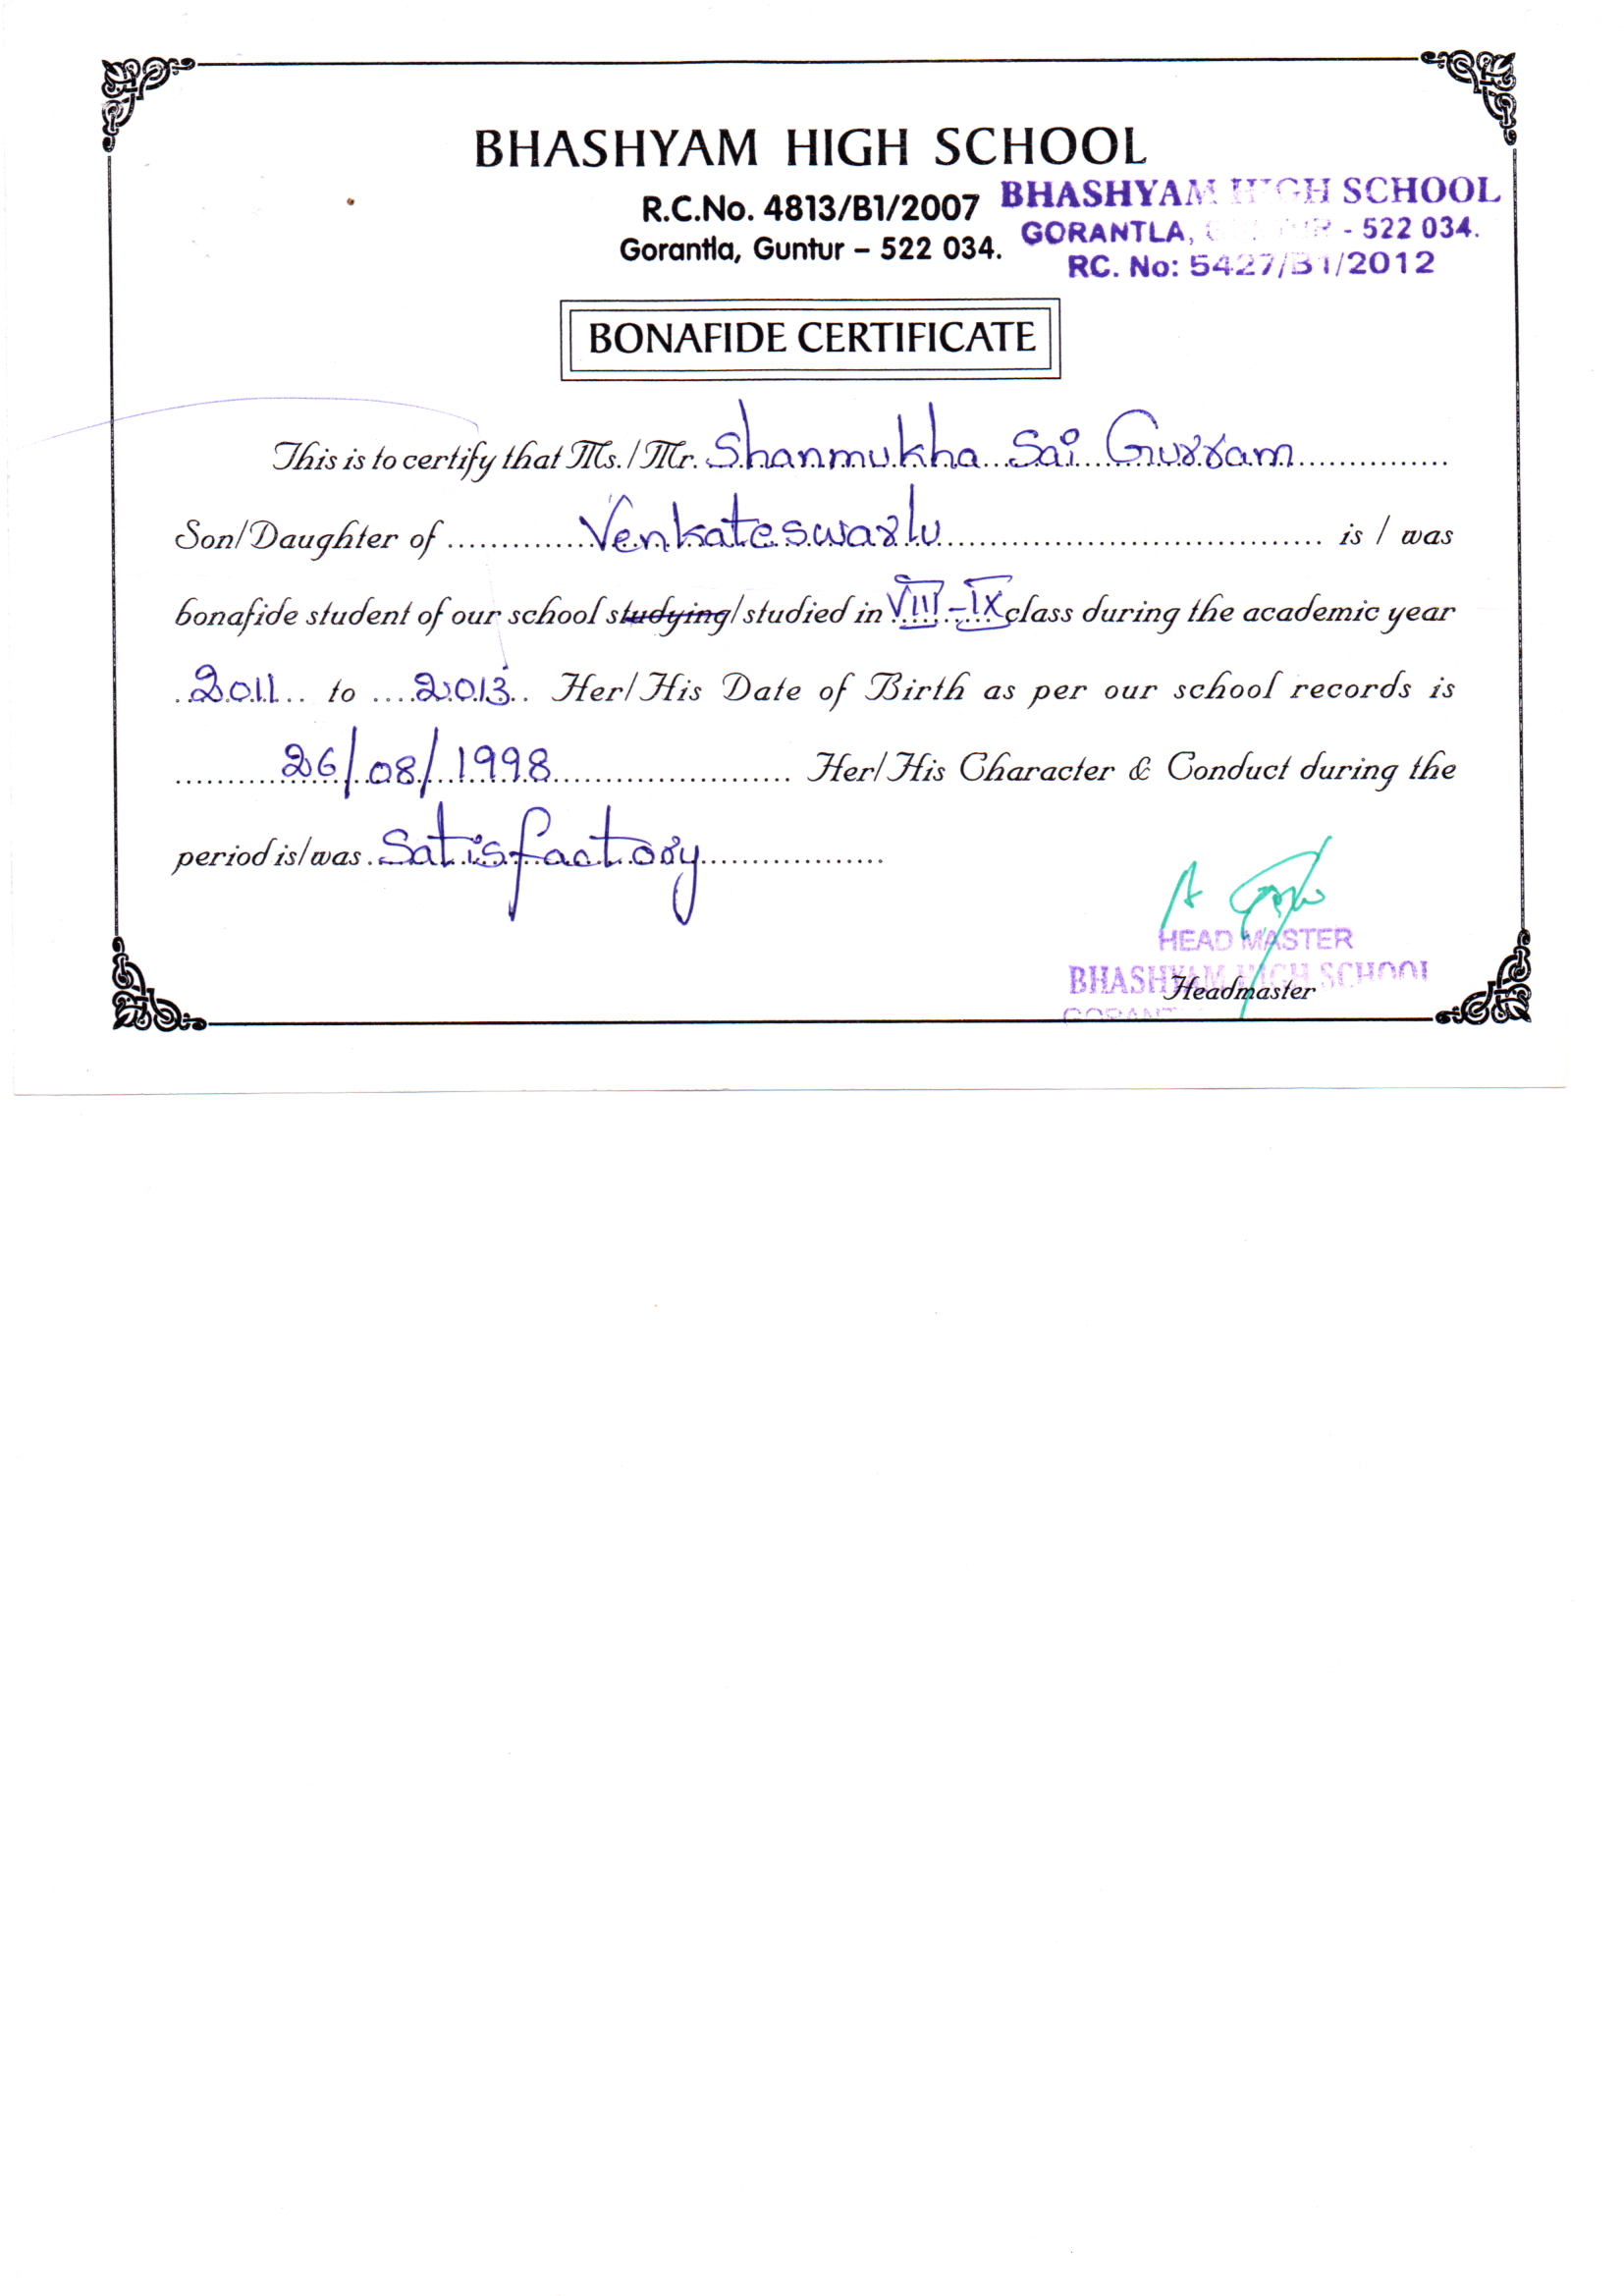 BHASHYAM HIGH SCHOOL
R.C.No. 4813/B1/2007
Gorantla, Guntur – 522 034.
BHASHYAM HIGH SCHOOL
GORANTLA, - 522 034.
RC. No: 5427/B1/2012
BONAFIDE CERTIFICATE
This is to certify that Ms./Mr. Shanmukha Sai Gurram
Son/Daughter of Venkateswarlu is / was
bonafide student of our school studying/studied in VIII - IX class during the academic year
2011 to 2013 Her/His Date of Birth as per our school records is
26/08/1998 Her/His Character & Conduct during the
period is/was Satisfactory
HEAD MASTER
BHASHYAM HIGH SCHOOL
Headmaster